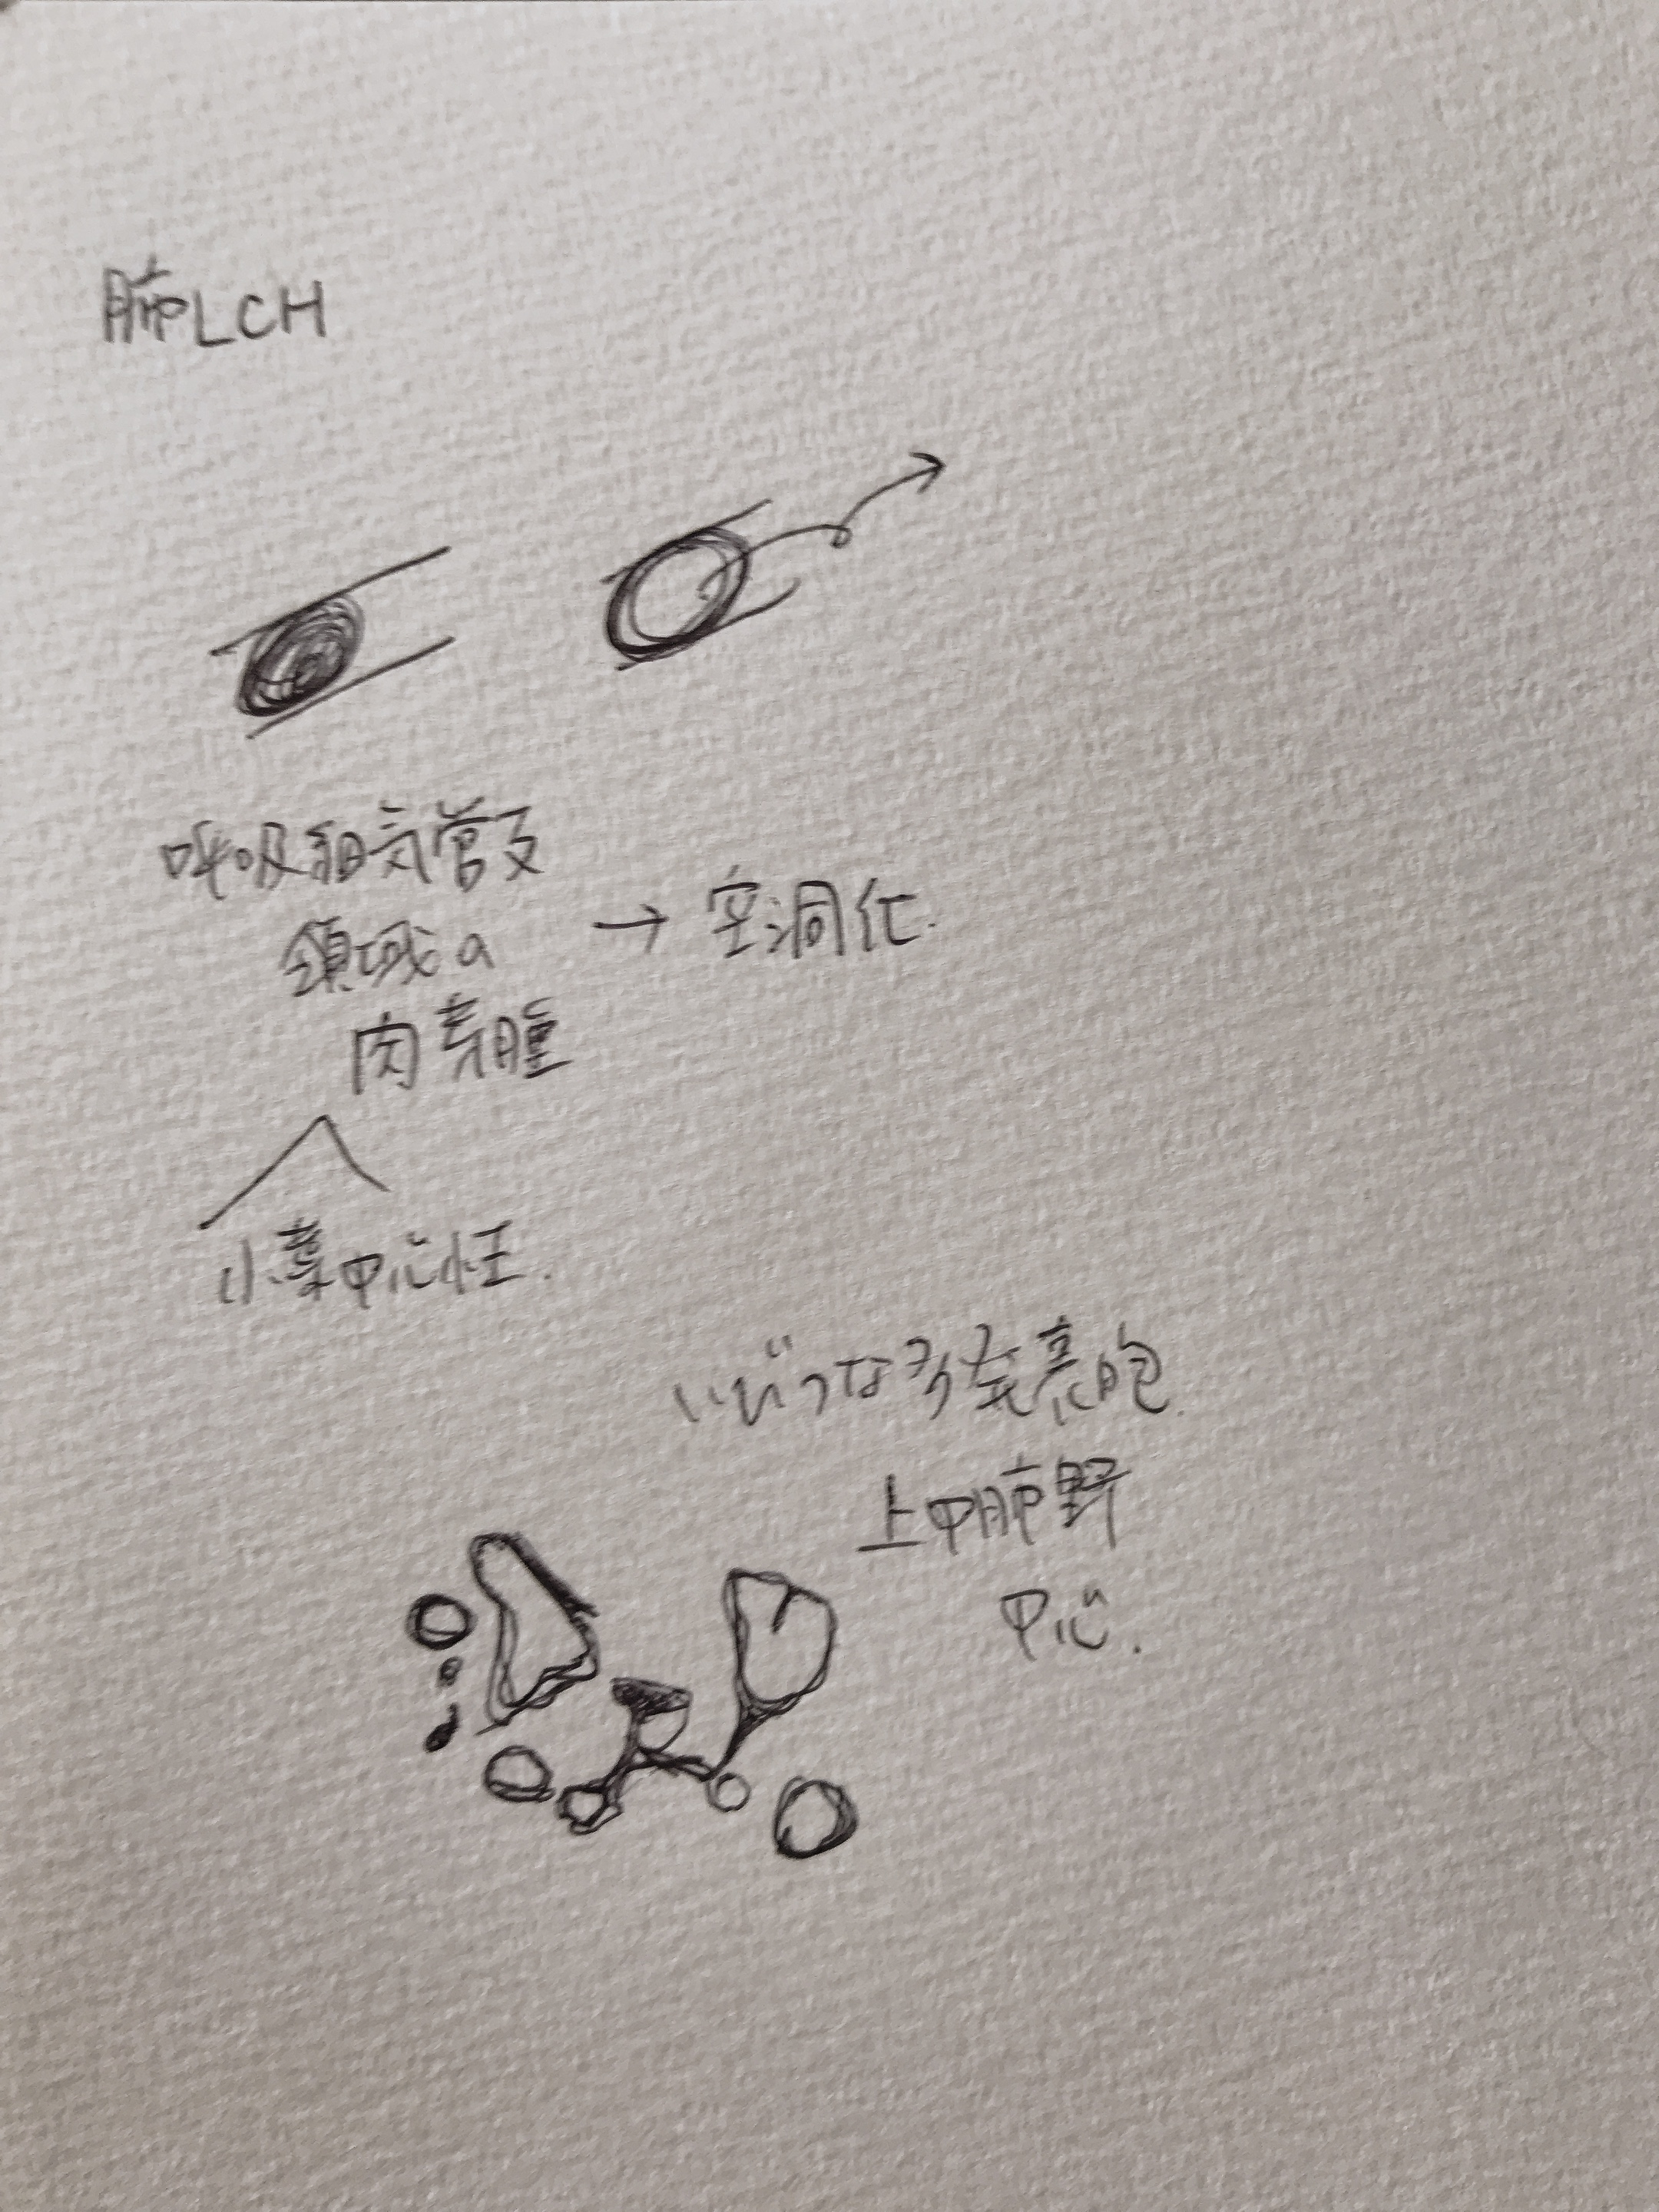 肺LCH
呼吸細気管支
領域の
肉芽腫
→ 空洞化.
小葉中心性.
いびつな多発嚢胞.
上中肺野
中心.